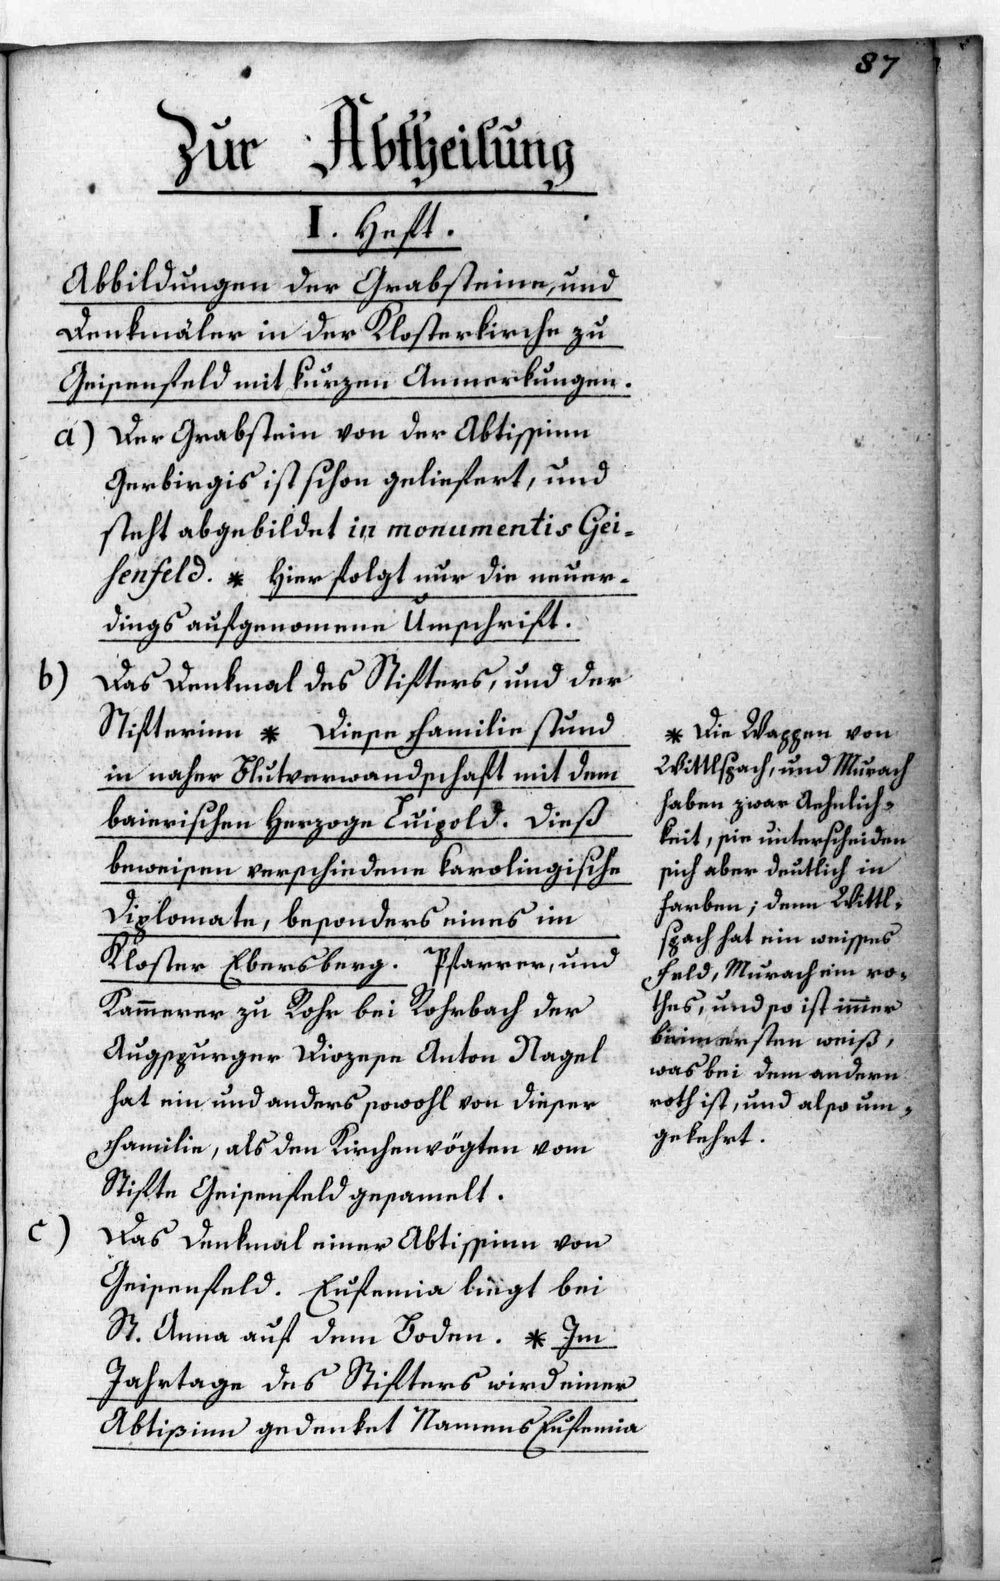 87
Zur Abtheilung
I. Heft.
Abbildungen der Grabsteine, und
Denkmäler in der Klosterkirche zu
Geisenfeld mit kurzen Anmerkungen.
a) Der Grabstein von der Abtissinn
Gerbirgis ist schon geliefert, und
steht abgebildet in monumentis Gei-
senfeld. * Hier folgt nur die neuer-
dings aufgenomene Umschrift.
b) Das Denkmal des Stifters, und der
Stifterinn * Diese Familie stund
in naher Blutverwandschaft mit dem
baierischen Herzoge Luipold. Dieß
beweisen verschiedene karolingische
Diplomate, besonders eines im
Kloster Ebersberg. Pfarrer, und
Kam̄erer zu Rohr bei Rohrbach der
Augspurger Diozese Anton Nagel
hat ein und anders sowohl von dieser
Familie, als den Kirchenvögten vom
Stifte Geisenfeld gesamelt.
c) Das Denkmal einer Abtissinn von
Geisenfeld. Eufemia liegt bei
St. Anna auf dem Boden. * Im
Jahrtage des Stifters wird einer
Abtißinn gedenket Namens Eufemia
* Die Wappen von
Wittlspach, und Murach
haben zwar Aehnlich-
keit, sie unterscheiden
sich aber deutlich in
Farben; denn Wittl-
spach hat ein weisses
Feld, Murach ein ro-
thes, und so ist im̄er
beim ersten weiß,
was bei dem andern
roth ist, und also um-
gekehrt.